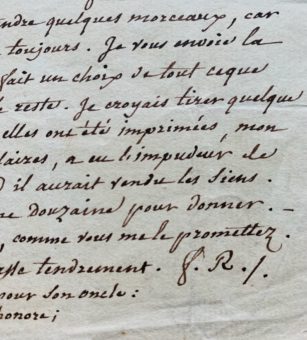 endre quelques morceaux, car
toujours. Je vous envoie la
fait un choix de tout ceque
reste. Je croyais tirer quelque
elles ont été imprimées, mon
laires, a eu l'impudeur de
il aurait vendu les siens.
douzaine pour donner. _
, comme vous me le promettez.
tendrement. J. R. /.
pour son oncle:
honore;